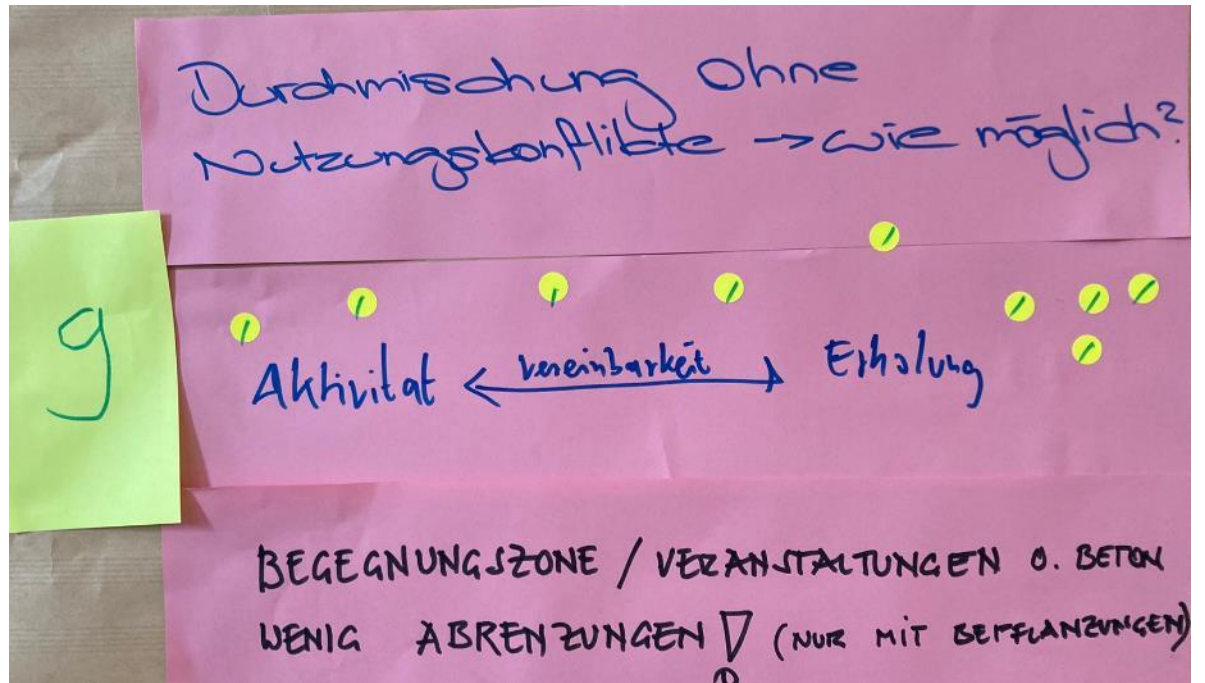 Durchmischung Ohne
Nutzungskonflikte → wie möglich?
9
Aktivitat ← vereinbarkeit → Erholung
BEGEGNUNGSZONE / VERANSTALTUNGEN O. BETON
WENIG ABRENZUNGEN ! (NUR MIT BEPFLANZUNGEN)